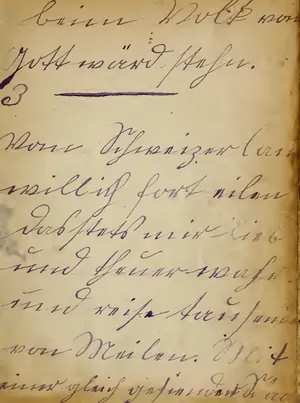 beim Volk von
Gott wärd stehn.
3
Vom Schweizerlan
will ich fort eilen
das stets mir lieb
und theuer wahr.
und reise tausende
von Meilen. Mit
einer gleich gesienden